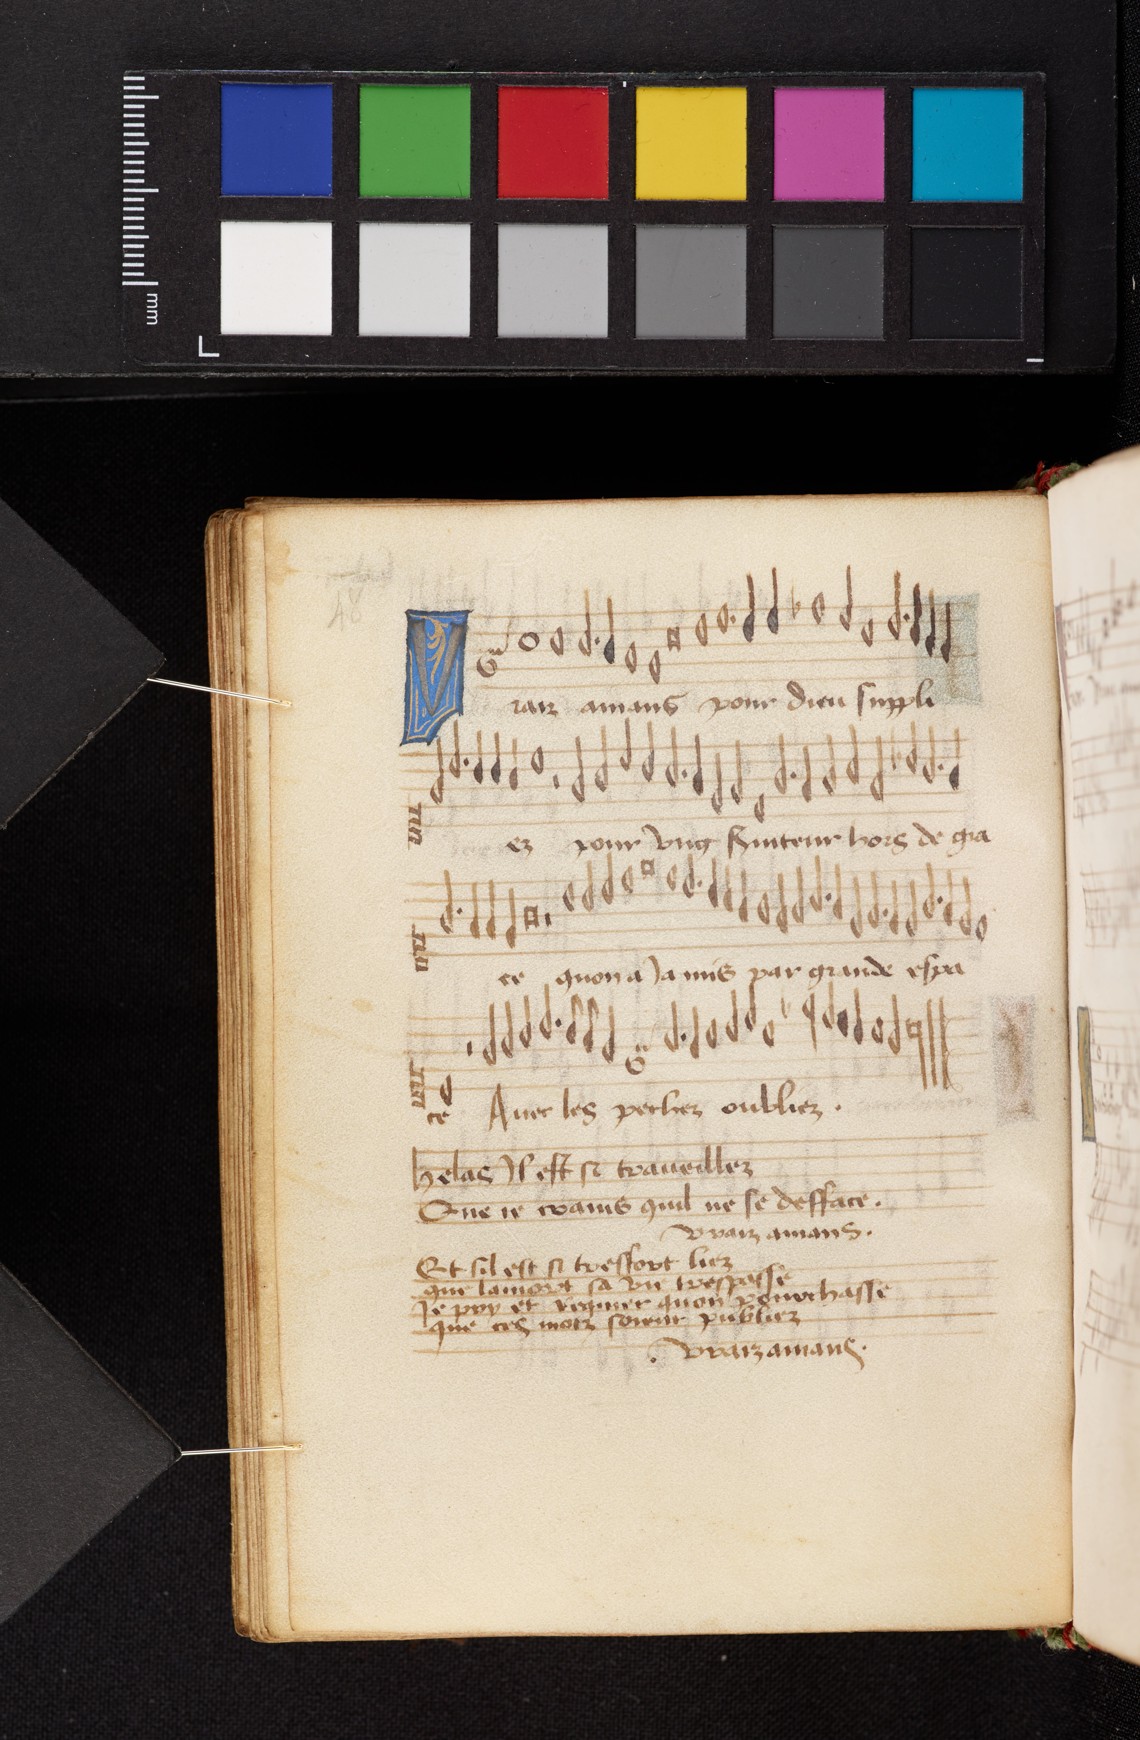 mm
48
Vraiz amans pour dieu suppli
ez pour vng fuiteur hors de gra
ce quon a Ja mis par grande espa
ce Auec les pechez oubliez .
helas Jl est si traueillez
Que ie crains quil ne se defface .
vraiz amans .
Et sil est si tresfort liez
que lamort sa vie trespasse
Je pry et requier quon pourchasse
que ces motz soient publiez
. vraiz amans .